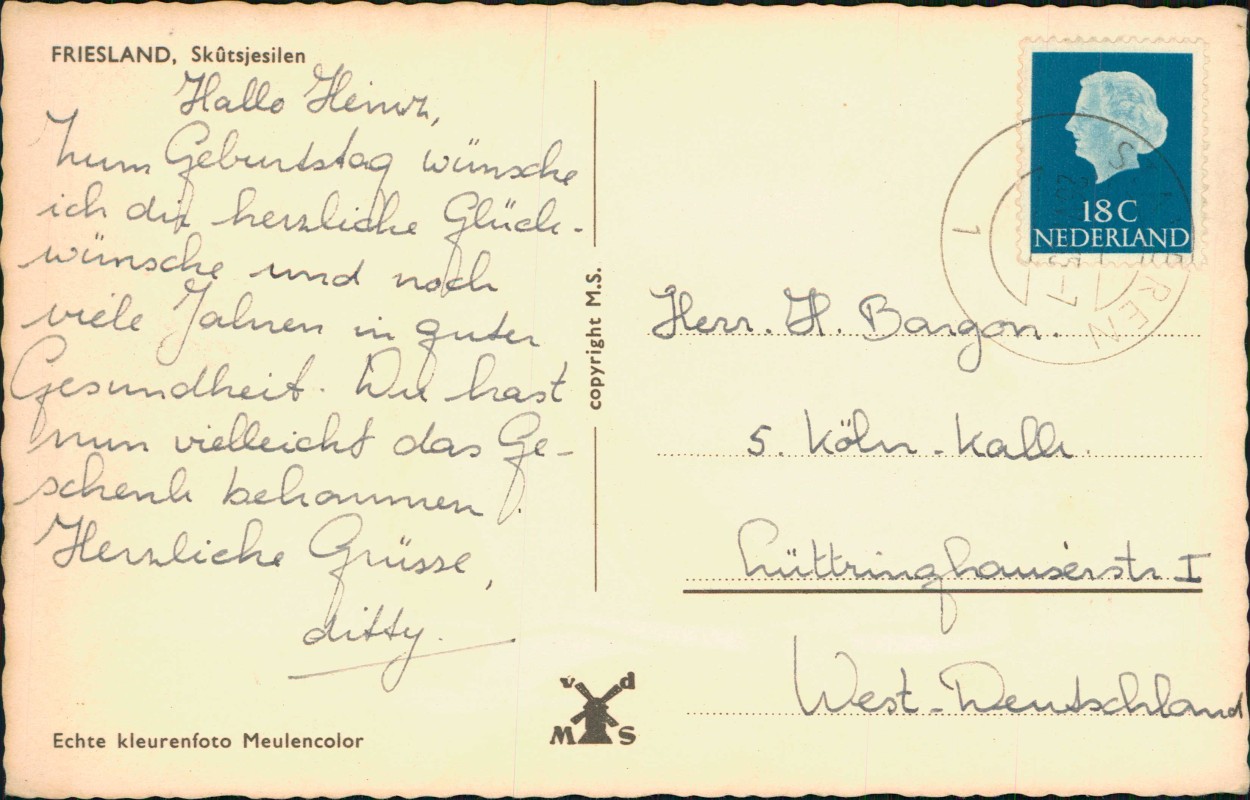 FRIESLAND, Skûtsjesilen
Hallo Heinz,
Zum Geburtstag wünsche
ich dir herzliche Glück-
wünsche und noch
viele Jahren in guter
Gesundheit. Du hast
nun vielleicht das Ge-
schenk bekommen.
Herzliche Grüsse,
ditty.
Echte kleurenfoto Meulencolor
copyright M.S.
v d
M S
18C
NEDERLAND
Herr. H. Bargon.
5. Köln-Kalk.
Lüttringhauserstr I
West-Deutschland